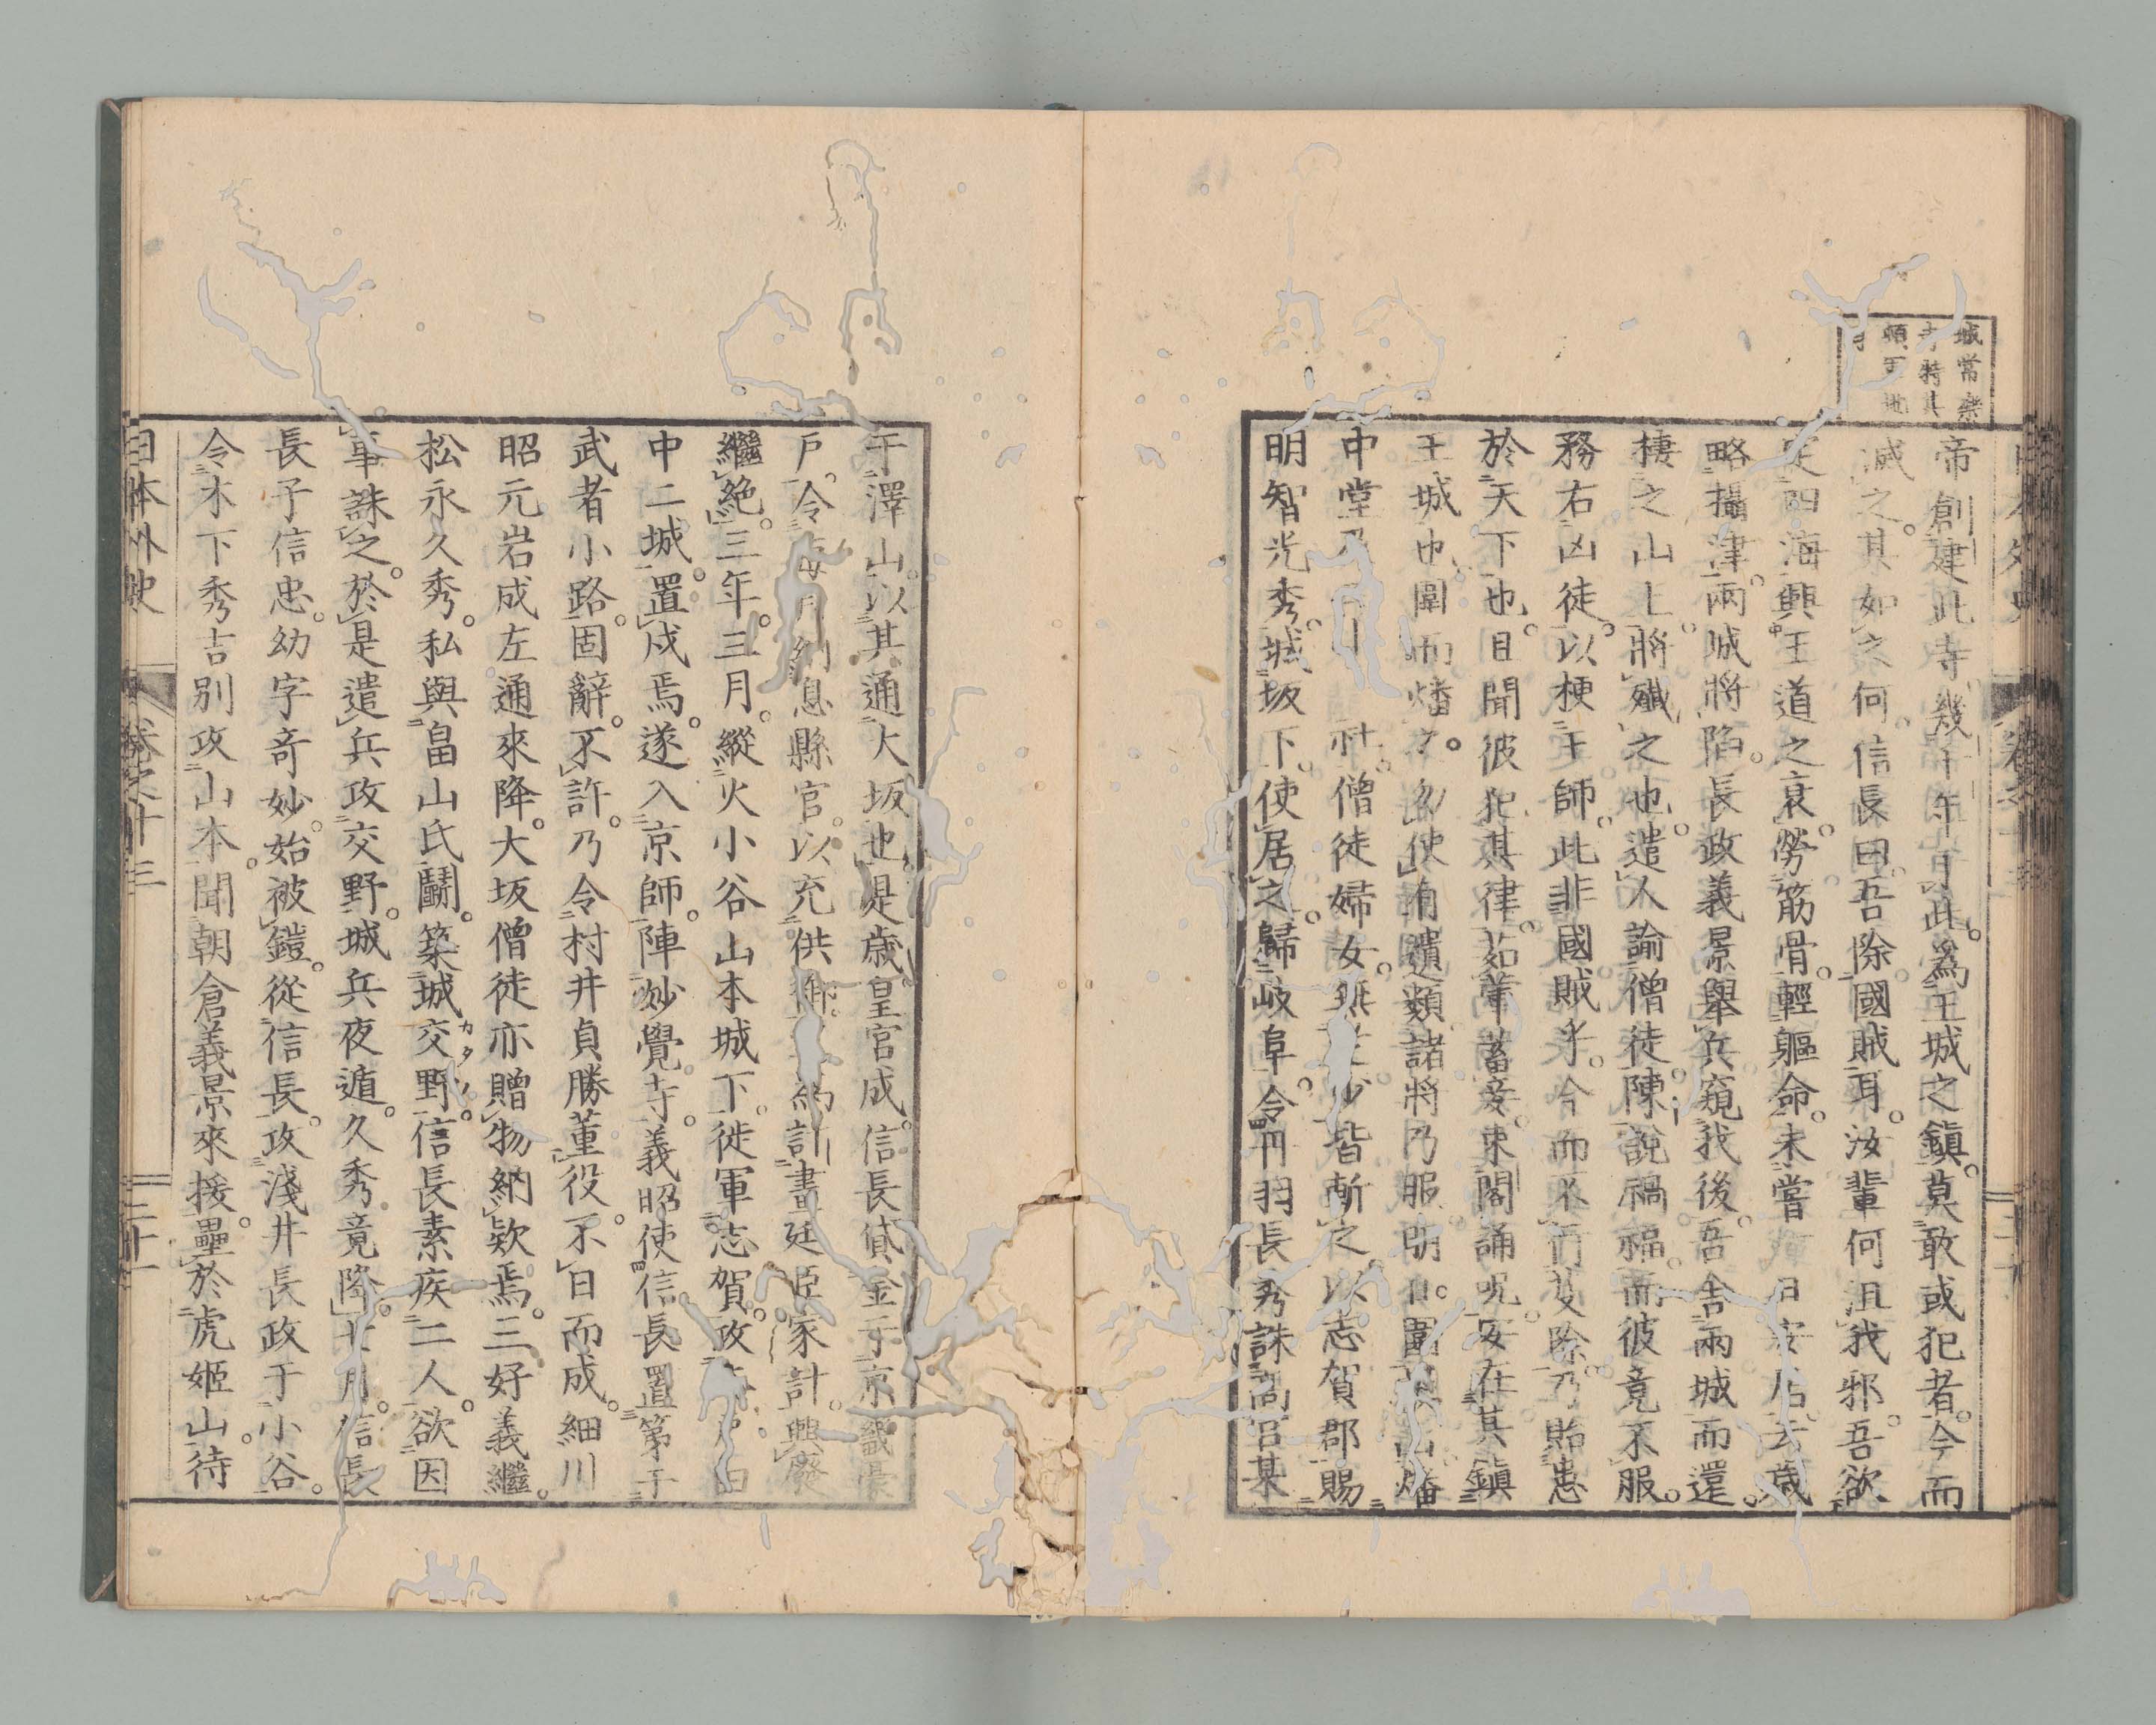 城常樂
寺特其
頻
帝創建此寺幾千年于此爲王城之鎭莫敢或犯者今而
滅之其如之何信長曰吾除國賊耳汝輩何沮我邪吾欲
定四海興王道之衰勞筋骨輕軀命未嘗一日安居去歳
略攝津兩城將陷長政義景舉兵窺我後吾舍兩城而還
棲之山上將殲之也遣人諭僧徒陳説禍福而彼竟不服
務右凶徒以梗王師此非國賊乎今而不芟除乃貽患
於天下也且聞彼犯其律茹葷蓄妾束閣誦呪安在其鎭
王城也圍而燔之勿使有遺類諸將乃服明日圍山燔
中堂社僧徒婦女無少皆斬之以志賀郡賜
明智光秀城坂下使居之歸岐阜令丹羽長秀誅高宮某
于澤山以其通大坂也是歳皇宮成信長貸金于京畿
戸令毎月納息縣官以充供御計畫廷臣家計興廢
繼絶三年三月縱火小谷山本城下徙軍志賀攻
中二城置戍焉遂入京師陣妙覺寺義昭使信長置第于
武者小路固辭不許乃令村井貞勝董役不日而成細川
昭元岩成左通來降大坂僧徒亦贈物納欵焉三好義繼
松永久秀私與畠山氏鬪築城交野信長素疾二人欲因
カタノ
事誅之於是遣兵攻交野城兵夜遁久秀竟降七月信長
長子信忠幼字奇妙始被鎧從信長攻淺井長政于小谷
令木下秀吉別攻山本聞朝倉義景來援壘於虎姬山待
日本外史 卷之十三 二十一